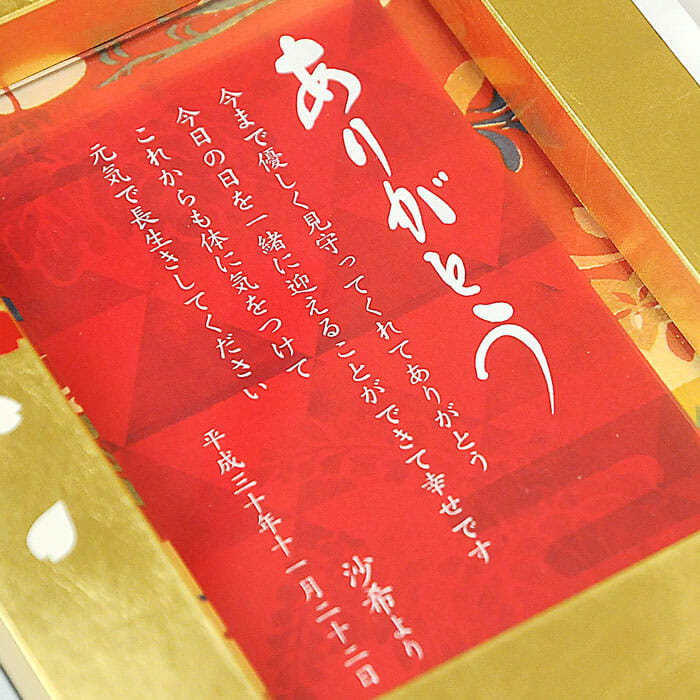 ありがとう
今まで優しく見守ってくれてありがとう
今日の日を一緒に迎えることができて幸せです
これからも体に気をつけて
元気で長生きしてください
平成三十年十一月二十二日
沙希より